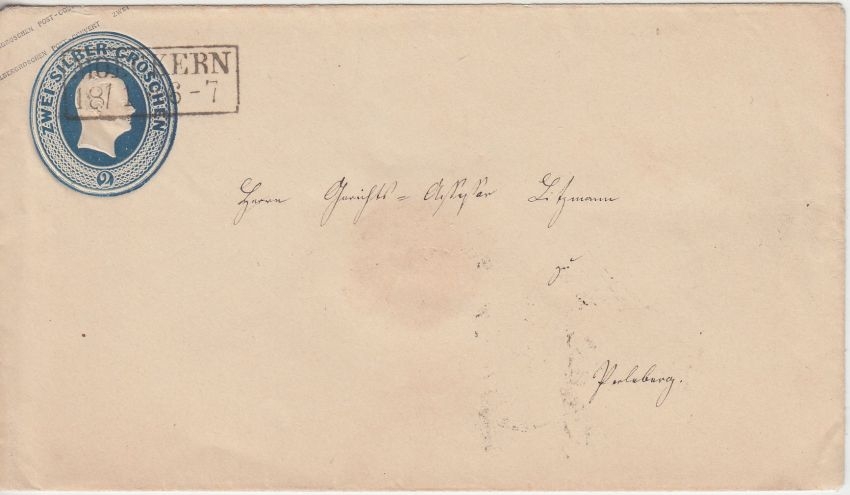 GROSCHEN POST-COUVERT ZWEI
SILBERGROSCHEN POST-COUVERT
ZWEI SILBER-GROSCHEN
2
6-7
Herrn Gerichts=Assessor Litzmann
zu
Perleberg.